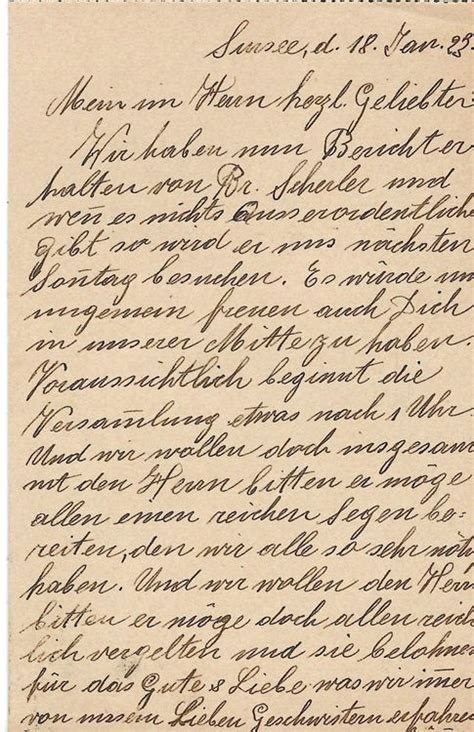 Sursee, d. 18. Jan. 23.
Mein im Herrn herzl. Geliebter:
Wir haben nun Bericht er
halten von Br. Scherler und
weñ es nichts Ausserordentliche
gibt so wird er uns nächsten
Soñtag besuchen. Es würde un
ungemein freuen auch Dich
in unserer Mitte zu haben.
Voraussichtlich beginnt die
Versam̄lung etwas nach 1 Uhr
Und wir wollen doch insgesam
mt den Herrn bitten er möge
allen einen reichen Segen be=
reiten, den wir alle so sehr nöth
haben. Und wir wollen den Herr
bitten er möge doch allen reich
lich vergelten und sie belohnen
für das Gute & Liebe was wir im̄er
von unsern Lieben Geschwistern erfahre